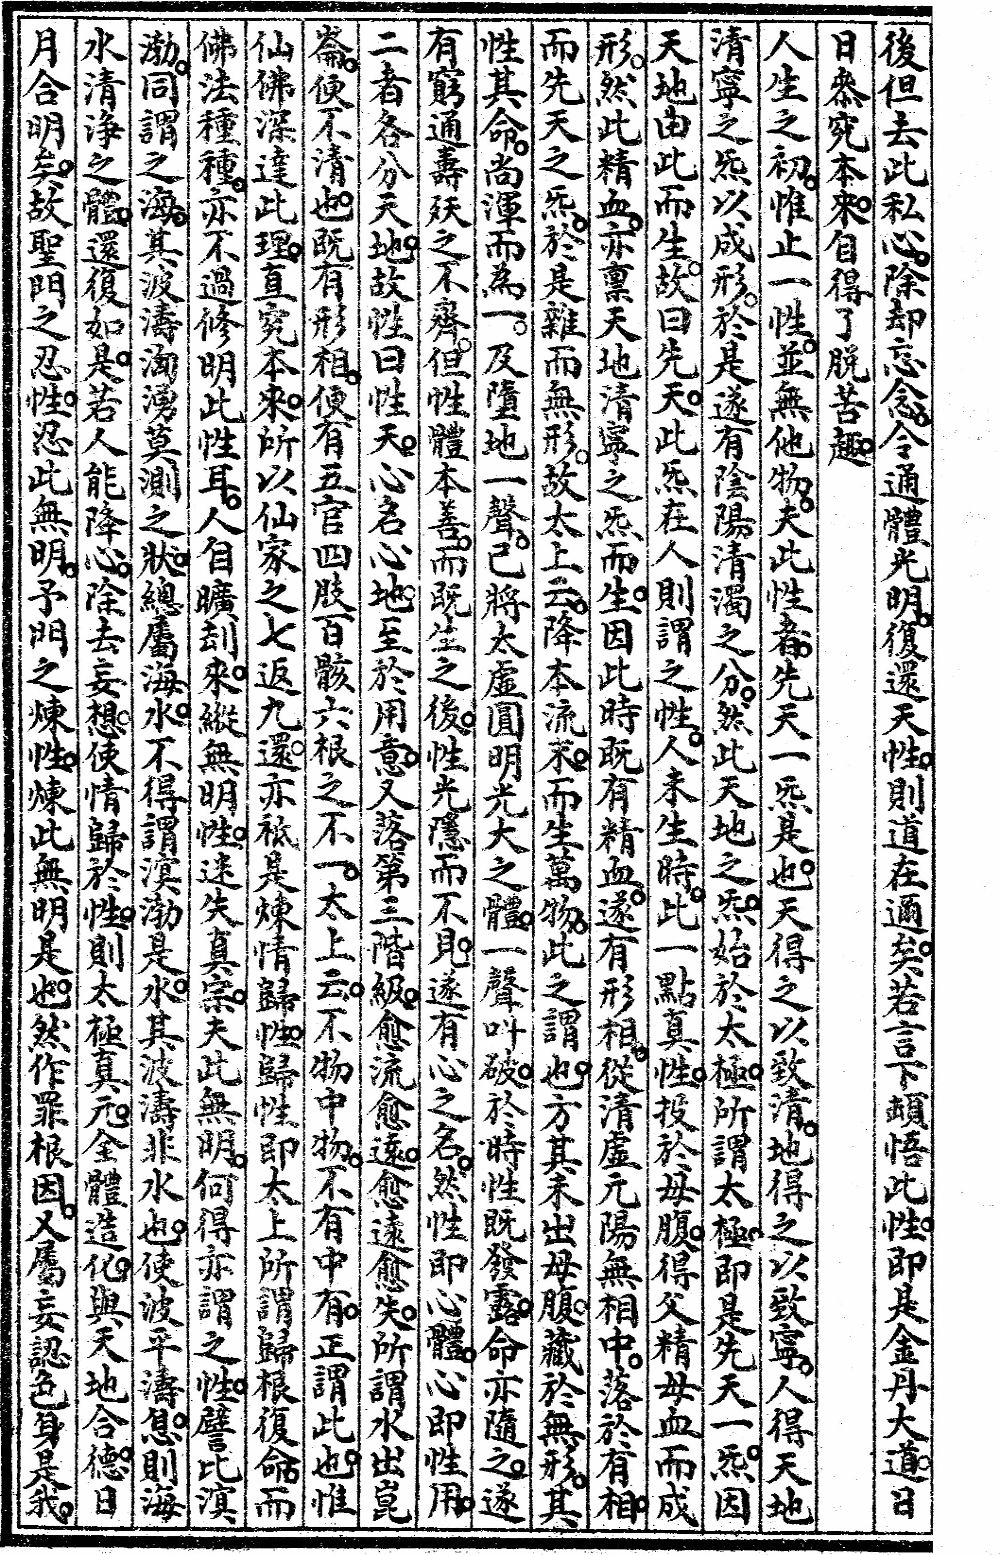 後但去此私心。除却忘念。令通體光明。復還天性。則道在邇矣。若言下頓悟此性。即是金丹大道。日
日叅究本來。自得了脱苦趣。
人生之初。惟止一性。並無他物。夫此性者。先天一炁是也。天得之以致清。地得之以致寧。人得天地
清寧之炁以成形。於是遂有陰陽清濁之分。然此天地之炁。始於太極。所謂太極。即是先天一炁。因
天地由此而生。故曰先天。此炁在人則謂之性。人未生時。此一點真性。投於母腹。得父精母血而成
形。然此精血。亦禀天地清寧之炁而生。因此時既有精血。遂有形相。從清虛元陽無相中。落於有相。
而先天之炁。於是雜而無形。故太上云。降本流末。而生萬物。此之謂也。方其未出母腹。藏於無形。其
性其命。尚渾而為一。及墮地一聲。已將太虛圓明光大之體。一聲叫破。於時性既發露。命亦隨之。遂
有窮通壽殀之不齊。但性體本善。而既生之後。性光隱而不見。遂有心之名。然性即心體。心即性用。
二者各分天地。故性曰性天。心名心地。至於用意。又落第三階級。愈流愈遠。愈遠愈失。所謂水出崑
崙。便不清也。既有形相。便有五官四肢百骸六根之不一。太上云。不物中物。不有中有。正謂此也。惟
仙佛深達此理。直究本來。所以仙家之七返九還。亦祗是煉情歸性。歸性即太上所謂歸根復命。而
佛法種種。亦不過修明此性耳。人自曠刦來。縱無明性。迷失真宗。夫此無明。何得亦謂之性。譬比溟
渤。同謂之海。其波濤洶湧莫測之狀。總屬海水。不得謂溟渤是水。其波濤非水也。使波平濤息。則海
水清淨之體。還復如是。若人能降心。除去妄想。使情歸於性。則太極真元。全體造化。與天地合德。日
月合明矣。故聖門之忍性。忍此無明。予門之煉性。煉此無明是也。然作罪根因。又屬妄認色身是我。